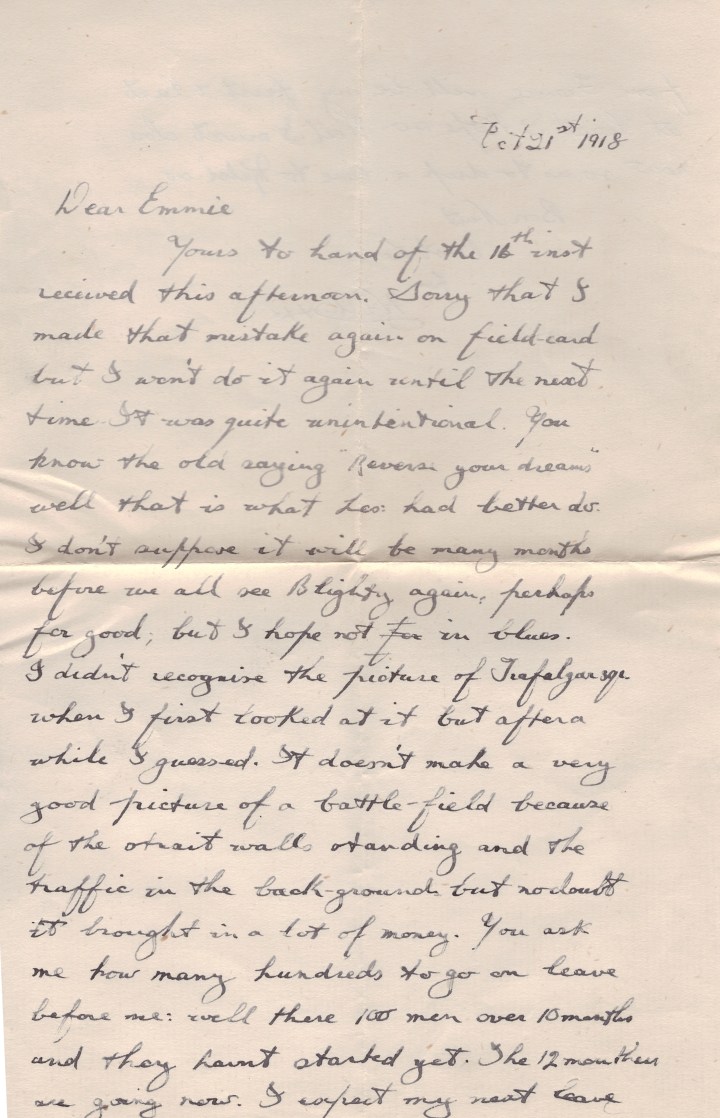 Oct 21st 1918
Dear Emmie
Yours to hand of the 16th inst
received this afternoon. Sorry that I
made that mistake again on field-card
but I won't do it again until the next
time. It was quite unintentional. You
know the old saying "Reverse your dreams"
well that is what Les: had better do.
I don't suppose it will be many months
before we all see Blighty again, perhaps
for good, but I hope not in blues.
I didn't recognise the picture of Trafalgar sqr.
when I first looked at it but after a
while I guessed. It doesn't make a very
good picture of a battle-field because
of the strait walls standing and the
traffic in the back-ground but no doubt
it brought in a lot of money. You ask
me how many hundreds to go on leave
before me: well there 100 men over 10 months
and they havnt started yet. The 12 monthers
are going now. I expect my next leave